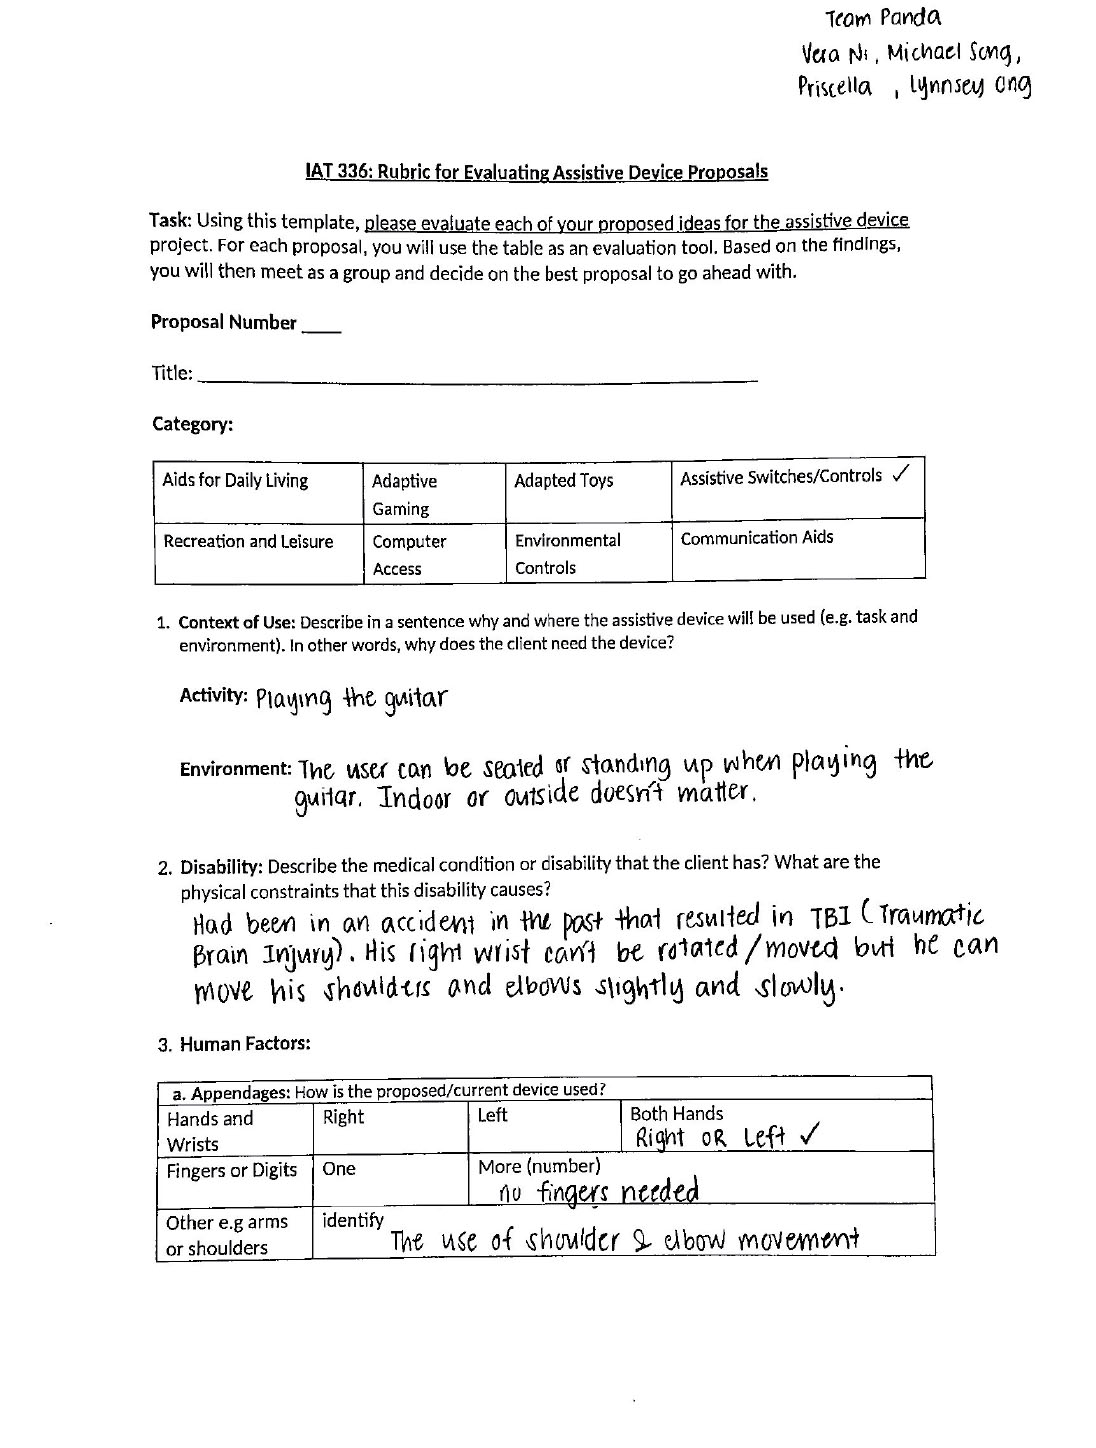 Team Panda
Vera Ni, Michael Song,
Priscella , Lynnsey Ong
IAT 336: Rubric for Evaluating Assistive Device Proposals
Task: Using this template, please evaluate each of your proposed ideas for the assistive device
project. For each proposal, you will use the table as an evaluation tool. Based on the findings,
you will then meet as a group and decide on the best proposal to go ahead with.
Proposal Number ____
Title: ____
Category:
Aids for Daily Living
Adaptive
Gaming
Adapted Toys
Assistive Switches/Controls ✓
Recreation and Leisure
Computer
Access
Environmental
Controls
Communication Aids
1. Context of Use: Describe in a sentence why and where the assistive device will be used (e.g. task and
environment). In other words, why does the client need the device?
Activity: Playing the guitar
Environment: The user can be seated or standing up when playing the
guitar. Indoor or outside doesn't matter.
2. Disability: Describe the medical condition or disability that the client has? What are the
physical constraints that this disability causes?
Had been in an accident in the past that resulted in TBI (Traumatic
Brain Injury). His right wrist can't be rotated/moved but he can
move his shoulders and elbows slightly and slowly.
3. Human Factors:
a. Appendages: How is the proposed/current device used?
Hands and
Wrists
Right
Left
Both Hands
Right OR Left ✓
Fingers or Digits
One
More (number)
no fingers needed
Other e.g arms
or shoulders
identify
The use of shoulder & elbow movement